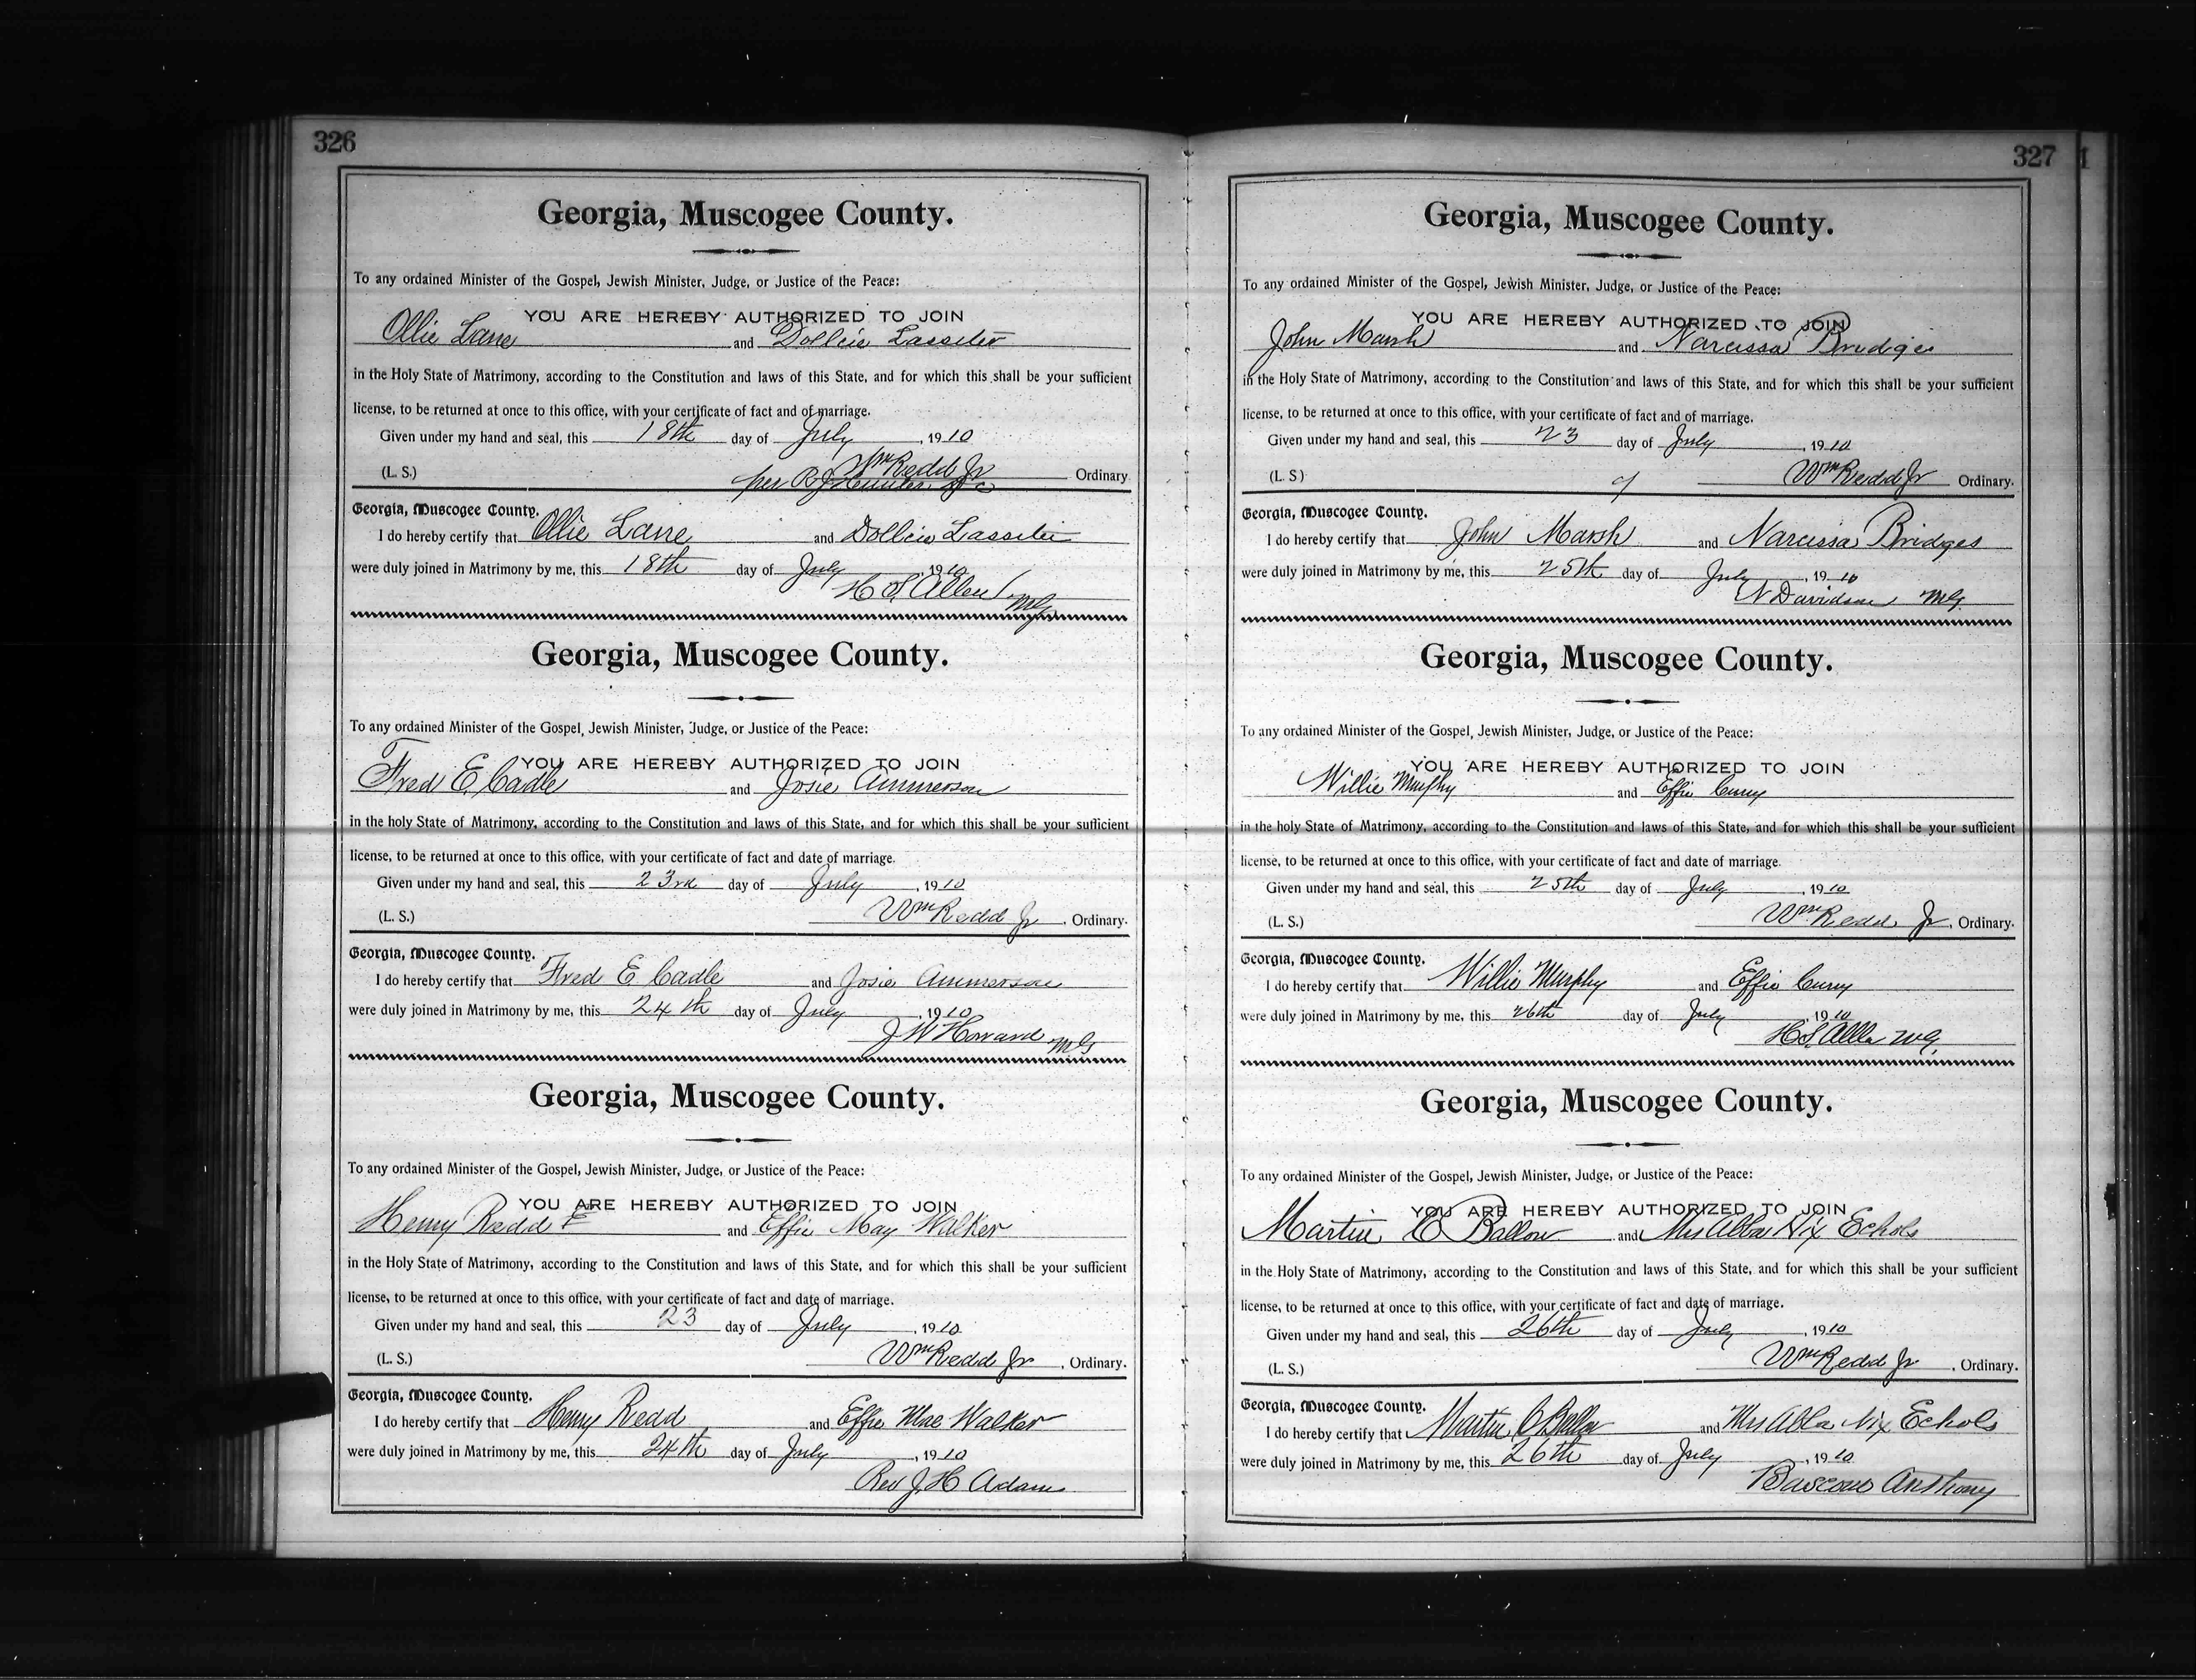 326
Georgia, Muscogee County.
To any ordained Minister of the Gospel, Jewish Minister, Judge, or Justice of the Peace:
YOU ARE HEREBY AUTHORIZED TO JOIN
Ollie Lane and Dollie Lassiter
in the Holy State of Matrimony, according to the Constitution and laws of this State, and for which this shall be your sufficient
license, to be returned at once to this office, with your certificate of fact and of marriage.
Given under my hand and seal, this 18th day of July, 1910
(L. S.) Wm Redd Jr Ordinary.
per R J Hunter
Georgia, Muscogee County.
I do hereby certify that Ollie Lane and Dollie Lassiter
were duly joined in Matrimony by me, this 18th day of July, 1910
H S Allen MG
Georgia, Muscogee County.
To any ordained Minister of the Gospel, Jewish Minister, Judge, or Justice of the Peace:
YOU ARE HEREBY AUTHORIZED TO JOIN
Fred E. Cadle and Josie Ammerson
in the holy State of Matrimony, according to the Constitution and laws of this State, and for which this shall be your sufficient
license, to be returned at once to this office, with your certificate of fact and date of marriage.
Given under my hand and seal, this 23rd day of July, 1910
(L. S.) Wm Redd Jr, Ordinary.
Georgia, Muscogee County.
I do hereby certify that Fred E Cadle and Josie Ammerson
were duly joined in Matrimony by me, this 24th day of July, 1910
J W Howard MG
Georgia, Muscogee County.
To any ordained Minister of the Gospel, Jewish Minister, Judge, or Justice of the Peace:
YOU ARE HEREBY AUTHORIZED TO JOIN
Henry Redd and Effie May Walker
in the Holy State of Matrimony, according to the Constitution and laws of this State, and for which this shall be your sufficient
license, to be returned at once to this office, with your certificate of fact and date of marriage.
Given under my hand and seal, this 23 day of July, 1910
(L. S.) Wm Redd Jr, Ordinary.
Georgia, Muscogee County.
I do hereby certify that Henry Redd and Effie Mae Walker
were duly joined in Matrimony by me, this 24th day of July, 1910
Rev J. H Adams
327
Georgia, Muscogee County.
To any ordained Minister of the Gospel, Jewish Minister, Judge, or Justice of the Peace:
YOU ARE HEREBY AUTHORIZED TO JOIN
John Marsh and Narcissa Bridges
in the Holy State of Matrimony, according to the Constitution and laws of this State, and for which this shall be your sufficient
license, to be returned at once to this office, with your certificate of fact and of marriage.
Given under my hand and seal, this 23 day of July, 1910
(L. S) Wm Redd Jr Ordinary.
Georgia, Muscogee County.
I do hereby certify that John Marsh and Narcissa Bridges
were duly joined in Matrimony by me, this 25th day of July, 1910
N Davidson MG.
Georgia, Muscogee County.
To any ordained Minister of the Gospel, Jewish Minister, Judge, or Justice of the Peace:
YOU ARE HEREBY AUTHORIZED TO JOIN
Willie Murphy and Effie Curry
in the holy State of Matrimony, according to the Constitution and laws of this State, and for which this shall be your sufficient
license, to be returned at once to this office, with your certificate of fact and date of marriage.
Given under my hand and seal, this 25th day of July, 1910
(L. S.) Wm Redd Jr, Ordinary.
Georgia, Muscogee County.
I do hereby certify that Willie Murphy and Effie Curry
were duly joined in Matrimony by me, this 26th day of July, 1910
H S. Allen MG.
Georgia, Muscogee County.
To any ordained Minister of the Gospel, Jewish Minister, Judge, or Justice of the Peace:
YOU ARE HEREBY AUTHORIZED TO JOIN
Martin C Ballow and Mrs Abba Nix Echols
in the Holy State of Matrimony, according to the Constitution and laws of this State, and for which this shall be your sufficient
license, to be returned at once to this office, with your certificate of fact and date of marriage.
Given under my hand and seal, this 26th day of July, 1910
(L. S.) Wm Redd Jr, Ordinary.
Georgia, Muscogee County.
I do hereby certify that Martin C Ballow and Mrs Abba Nix Echols
were duly joined in Matrimony by me, this 26th day of July, 1910
Bascom Anthony